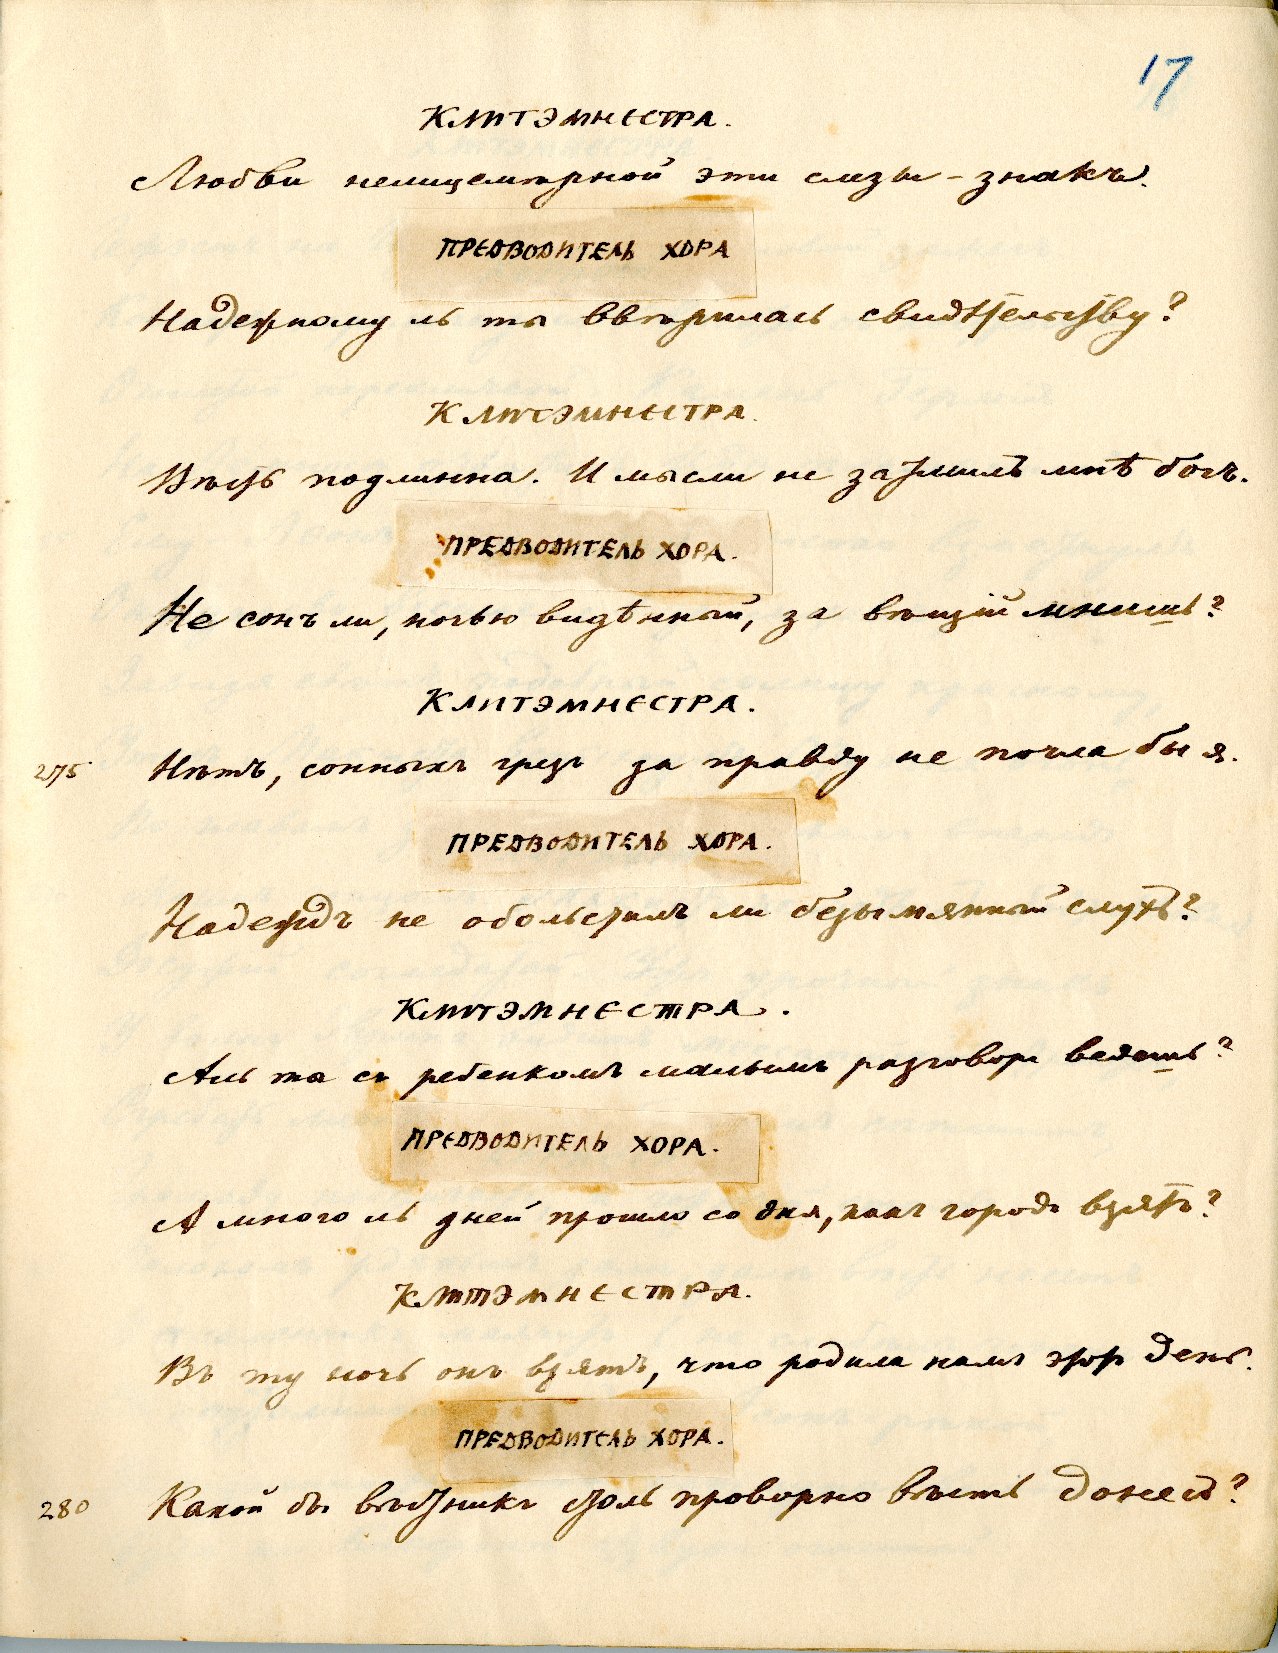 17
КЛИТЭМНЕСТРА.
Любви нелицемѣрной эти слезы – знакъ.
ПРЕДВОДИТЕЛЬ ХОРА
Надежному ль ты ввѣрилась свидѣтельству?
КЛИТЭМНЕСТРА.
Вѣсть подлинна. И мысли не затмилъ мнѣ богъ.
ПРЕДВОДИТЕЛЬ ХОРА.
Не сонъ ли, ночью видѣнный, за вѣщій мнишь?
КЛИТЭМНЕСТРА.
275 Нѣтъ, сонныхъ грезъ за правду не почла бы я.
ПРЕДВОДИТЕЛЬ ХОРА.
Надеждъ не обольстилъ ли безымянный слухъ?
КЛИТЭМНЕСТРА.
Аль ты съ ребенкомъ малымъ разговоръ ведешь?
ПРЕДВОДИТЕЛЬ ХОРА.
А много ль дней прошло со дня, какъ городъ взятъ?
КЛИТЭМНЕСТРА.
Въ ту ночь онъ взятъ, что родила намъ этотъ день.
ПРЕДВОДИТЕЛЬ ХОРА.
280 Какой бы вѣстникъ столь проворно вѣсть донесъ?